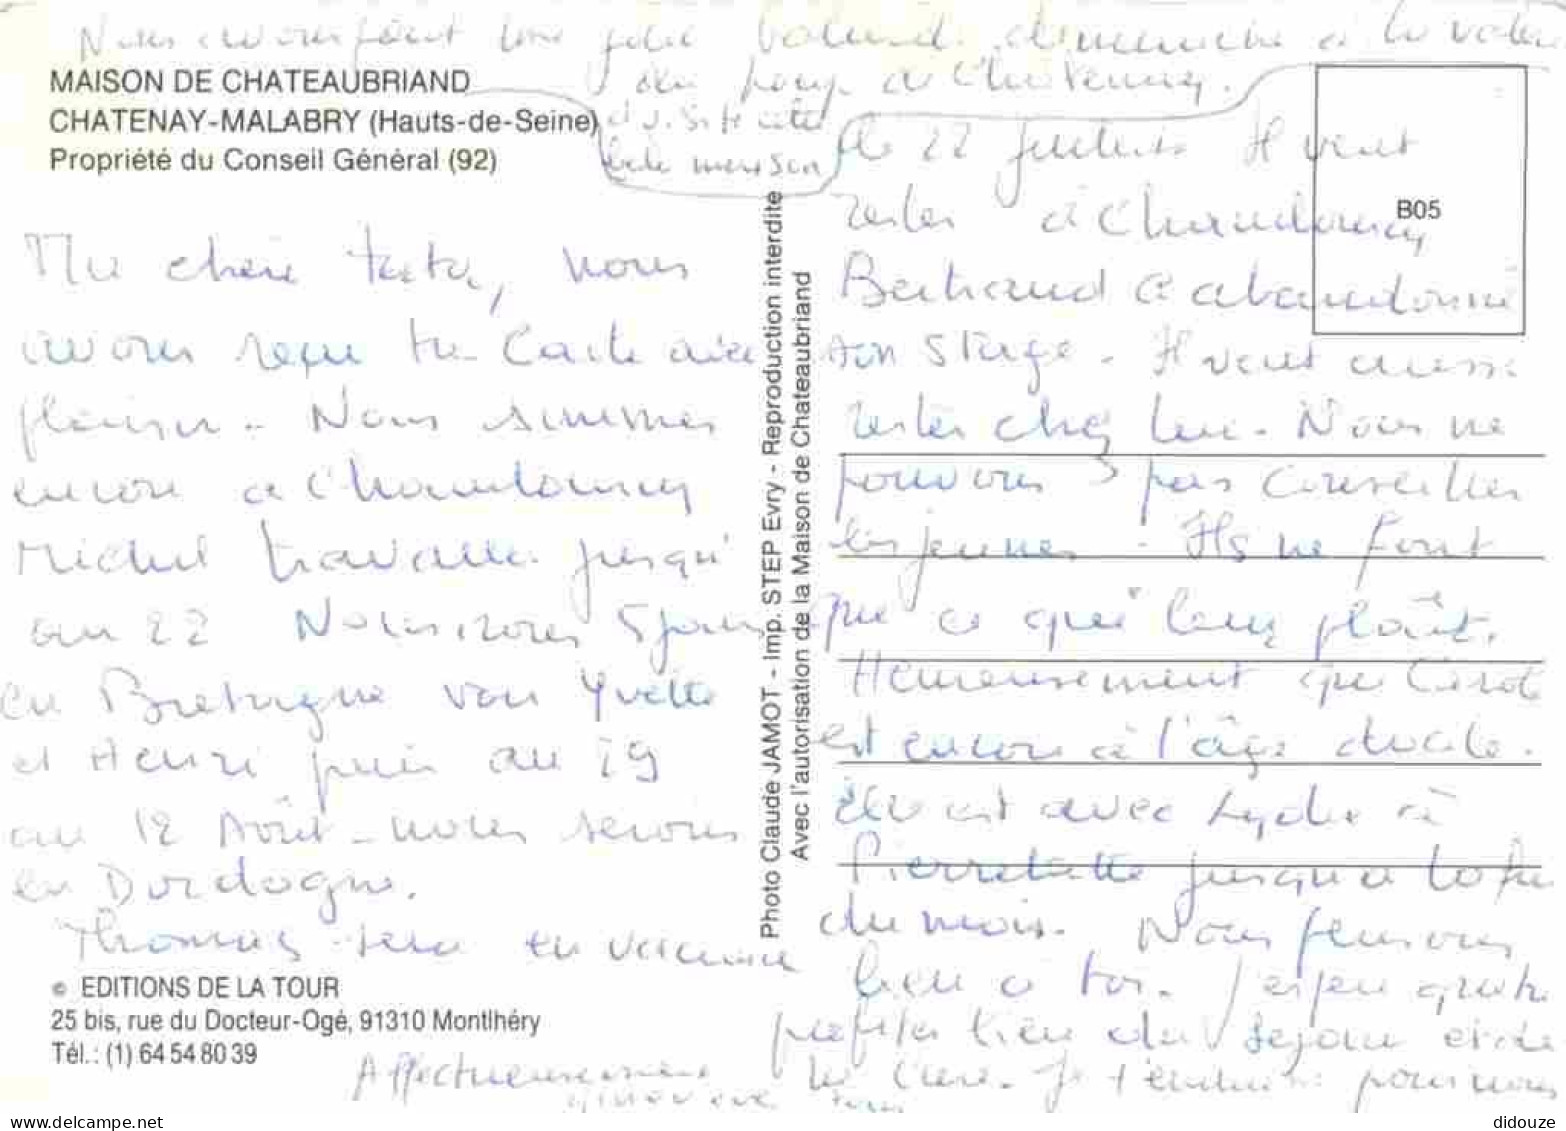 Nous avons fait une jolie balade dimanche à la
du parc à Chatenay.
et visité cette
belle maison
MAISON DE CHATEAUBRIAND
CHATENAY-MALABRY (Hauts-de-Seine)
Propriété du Conseil Général (92)
Ma chère tata, nous
avons reçu ta carte avec
plaisir. Nous sommes
encore à
Michel travaille jusqu'
au 22 Nous irons 5 jours
en Bretagne voir Yvette
et Henri puis au 29
au 12 Août - nous serons
en Dordogne.
Thomas sera en vacances
© EDITIONS DE LA TOUR
25 bis, rue du Docteur-Ogé, 91310 Montlhéry
Tél.: (1) 64 54 80 39
Photo Claude JAMOT - Imp. STEP Evry - Reproduction interdite
Avec l'autorisation de la Maison de Chateaubriand
B05
le 22 Juillet. Il veut
rester à
Bertrand a abandonné
son stage. Il veut aussi
rester chez lui. Nous ne
pouvons pas conseiller
les jeunes. Ils ne font
que ce qui leur plaît.
Heureusement que
est encore à l'âge docile.
Elle est avec Lydie à
Pierrelatte jusqu'à la fin
du mois. Nous pensons
bien à toi. J'espère que tu
profites bien du séjour et de
la cure. Je t'embrasse pour nous
tous
Affectueusement
Geneviève
didouze